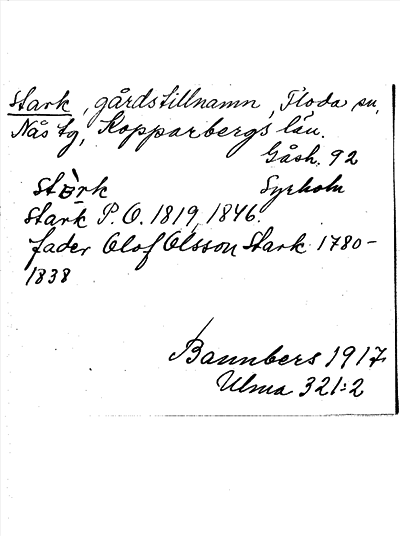 Stark, gårdstillnamn, Floda sn,
Nås tg, Kopparbergs län.
Gåsh. 92
Stàrk Syrholn
Stark P. O. 1819, 1846.
fader Olof Olsson Stark 1780-
1838
Bannbers 1917
Ulma 321:2